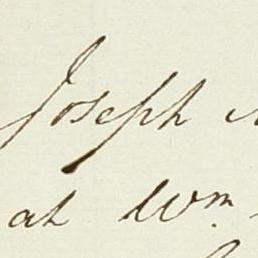 Joseph
at Wm